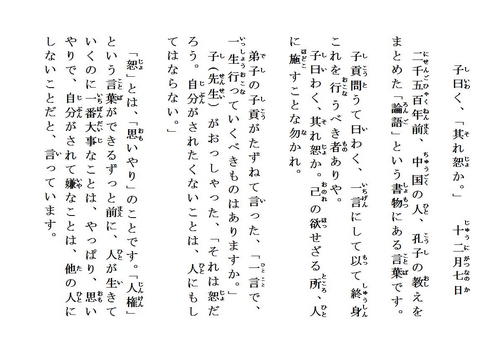 子曰く、「其れ恕か。」 十二月七日
二千五百年前、中国の人、孔子の教えを
まとめた「論語」という書物にある言葉です。
子貢問うて曰わく、一言にして以て終身
これを行うべき者ありや。
子曰わく、其れ恕か。己の欲せざる所、人
に施すことな勿かれ。
弟子の子貢がたずねて言った、「一言で、
一生行っていくべきものはありますか。」
子(先生)がおっしゃった、「それは恕だ
ろう。自分がされたくないことは、人にもし
てはならない。」
「恕」とは、「思いやり」のことです。「人権」
という言葉ができるずっと前に、人が生きて
いくのに一番大事なことは、やっぱり、思い
やりで、自分がされて嫌なことは、他の人に
しないことだと、言っています。